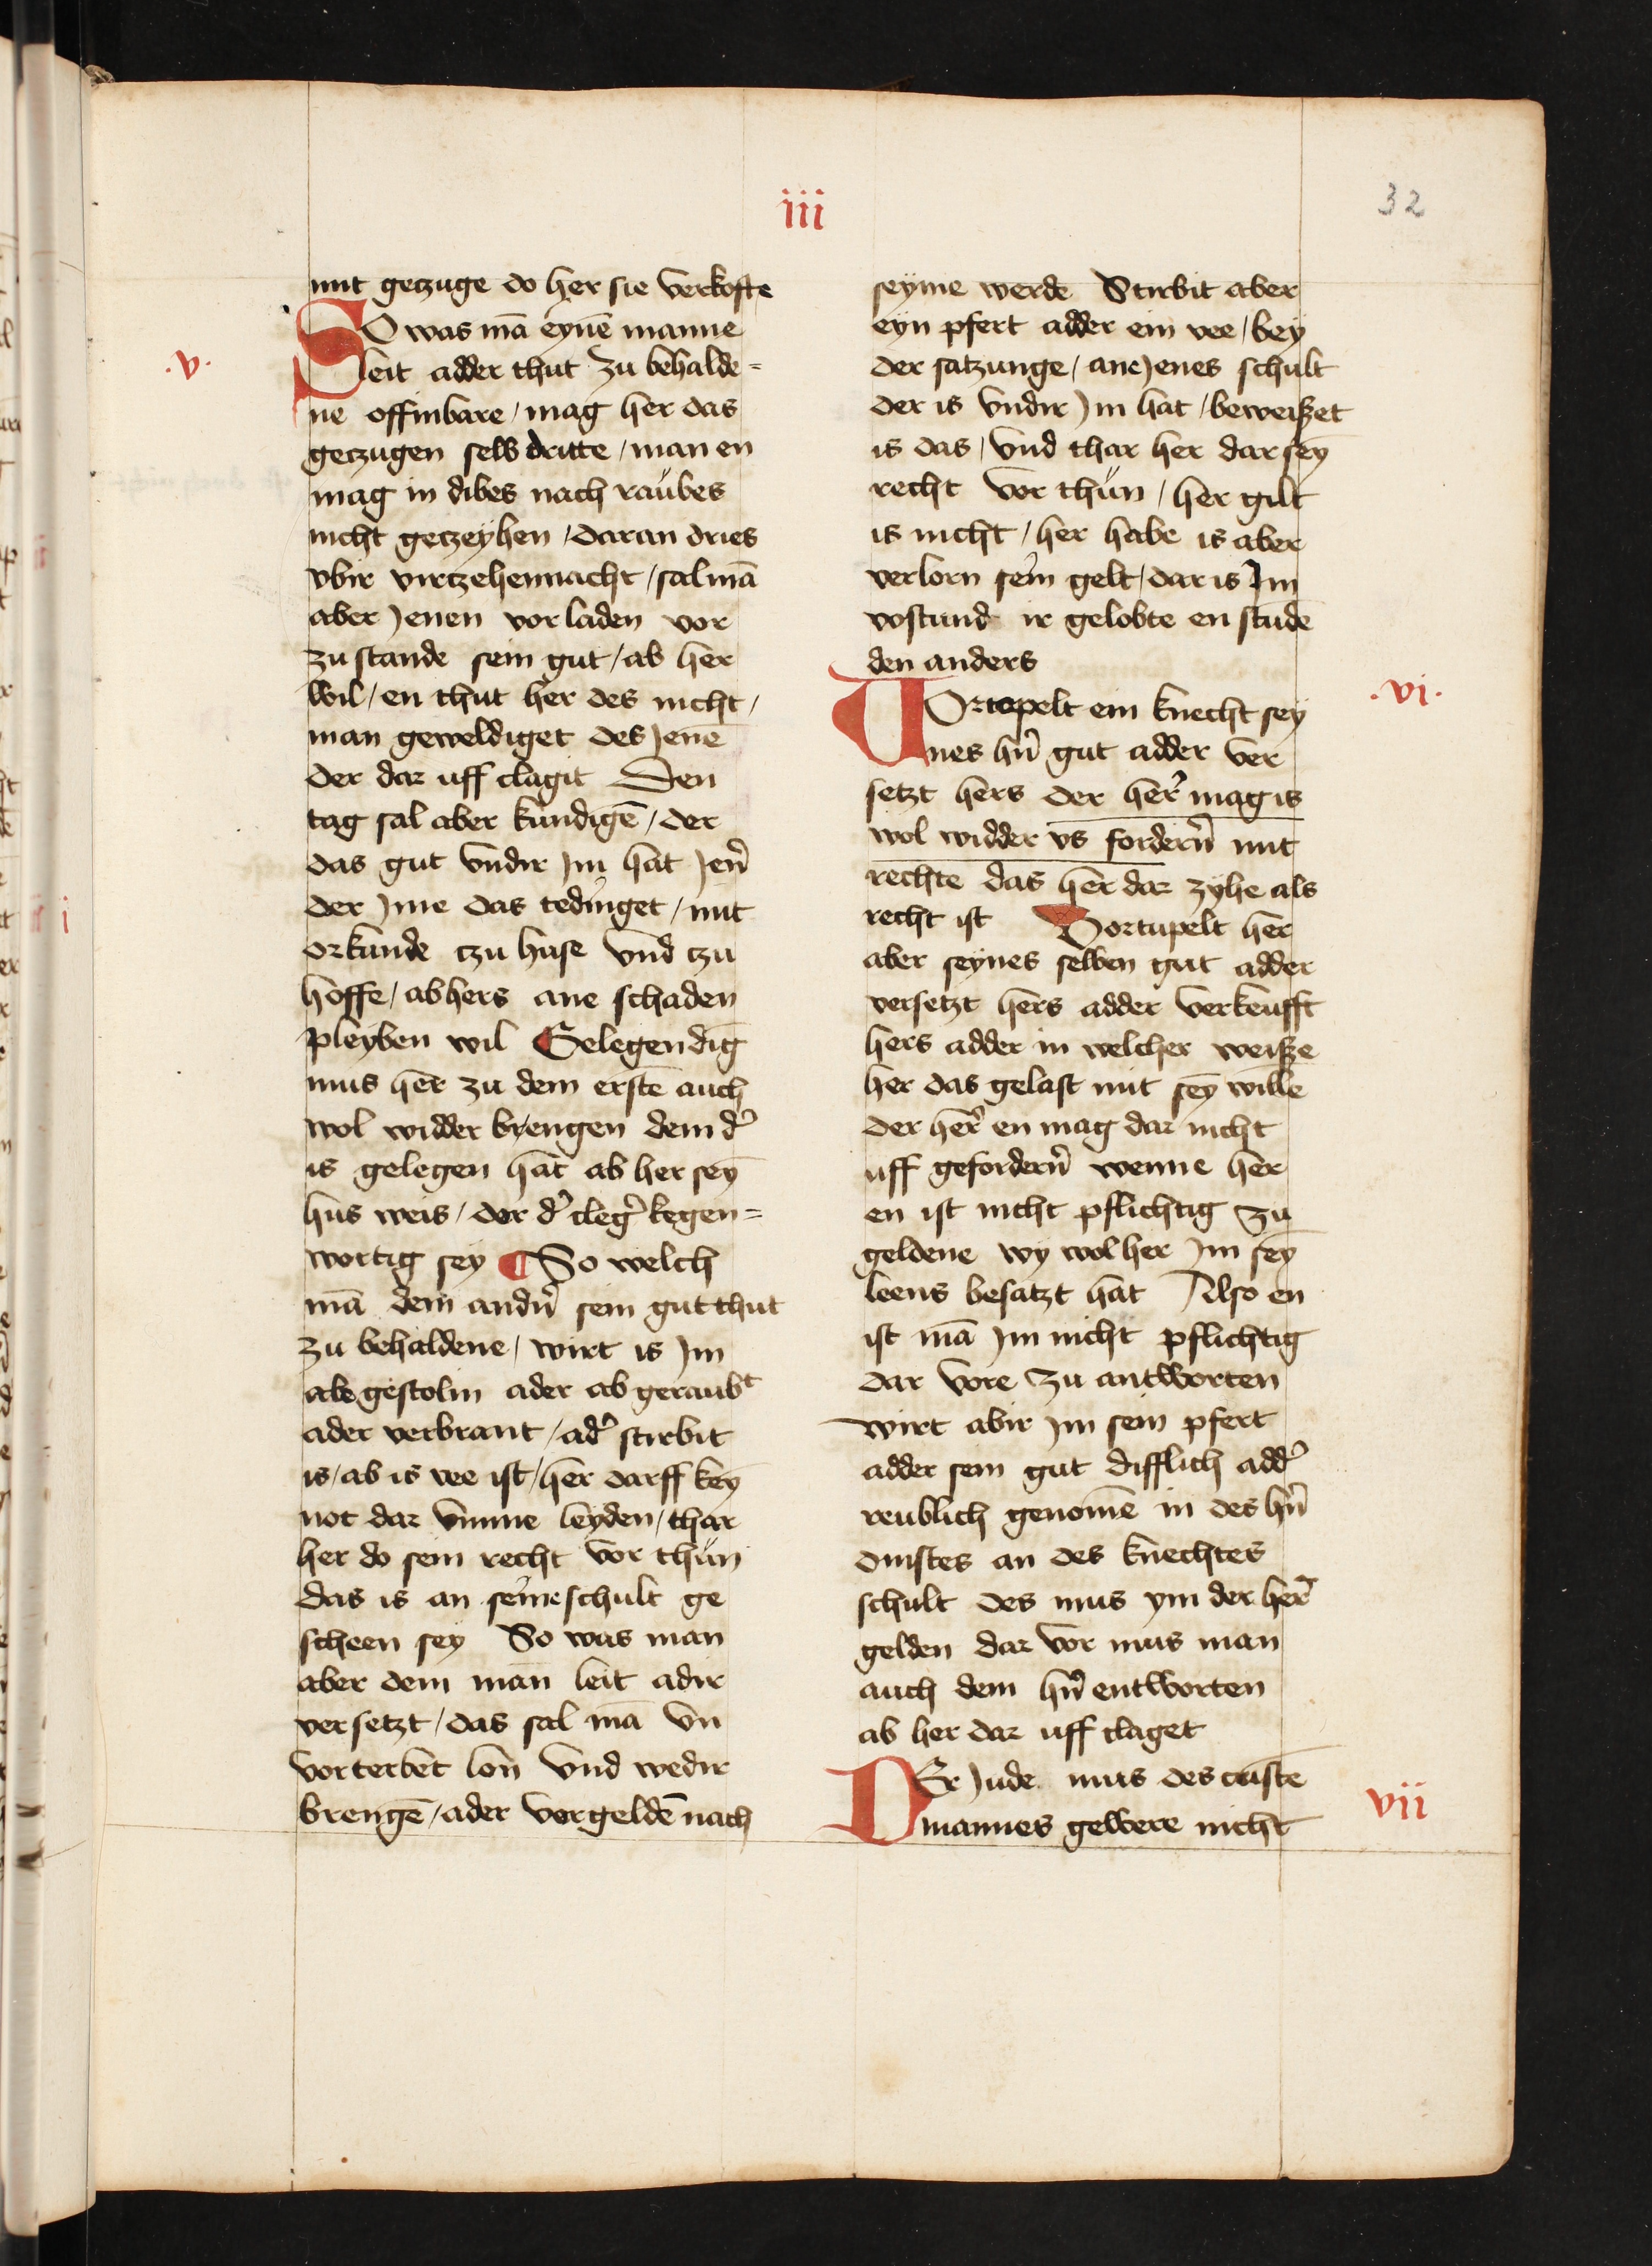 iii
32
mit geczuge do her sie verkofte
.v.
SO was mā eynē manne
leit adder thut zu behalde=
ne offinbare / mag her das
geczugen selb dritte / man en
mag in dibes nach raubes
nicht geczeyhen / daran dries
vbir virczehennacht / sal mā
aber Jenen vorladen vor
zu stande sein gut / ab her
wil / en thut her des nicht /
man geweldiget des Jenē
der dar uff clagit Den
tag sal aber kundigē / der
das gut vndir Jm hat Jen̄
der Jme das tedinget / mit
orkunde czu huse vnd czu
hoffe / ab hers ane schaden
pleyben wil Gelegen dīg
mus her zu dem erstē auch
wol widder brengen dem d'
is gelegen hat ab her sey
hus weis / dor d' cleg' kegen=
wortig sey ¶ So welch
mā dem andn̄ sein gut thut
zu behaldene / wirt is Jm
abe gestolin ader ab geraubt
ader verbrant / ad' stirbit
is / ab is vee ist / her darff key
not dar vmme leyden / thar
her do sein recht vor thun
das is an seine schult ge
scheen sey So was man
aber dem man leit adir
versetzt / das sal mā vn
vorterbet lon̄ vnd wedir
brengē / ader vorgeldē nach
seyme werde Stirbit aber
eyn pfert adder ein vee / bey
der satzunge / ane Jenes schult
der is vndir Jm hat / beweiszet
is das / vnd thar her dar sey
recht vor thun / her gilt
is nicht / her habe is aber
verlorn sein gelt / dar is Jm
vostund ir gelobte en stūde
den anders
.vi.
VOrtopelt ein knecht sey
nes hn̄ gut adder ver
setzt hers der her' mag is
wol widder vs fordern̄ mit
rechte das her dar zyhe als
recht ist Vortupelt her
aber seynes selben gut adder
versetzt hers adder verkeufft
hers adder in welcher weisze
her das gelast mit sey wille
der her' en mag dar nicht
uff gefordern̄ wenne her
en ist nicht pflichtig zu
geldene wy wol her Jm sey
leens besatzt hat Also en
ist mā Jm nicht pflichtig
dar vore zu antworten
wirt abir Jm sein pfert
adder sein gut difflich add'
reublich genomē in des hn̄
dinstes an des knechtes
schult des mus ym der her'
gelden dar vor mus man
auch dem hn̄ entworten
ab her dar uff claget
DEr Jude mus des cristē
mannes gewere nicht
vii